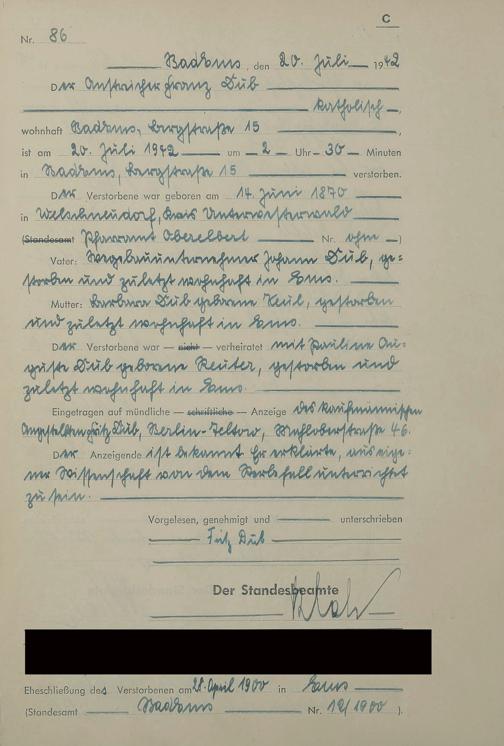 C
Nr. 86
Bad Ems, den 20. Juli 1942
Der Anstreicher Franz Dub
katholisch,
wohnhaft Bad Ems, Bergstraße 15,
ist am 20. Juli 1942 um 2 Uhr 30 Minuten
in Bad Ems, Bergstraße 15 verstorben.
Der Verstorbene war geboren am 14. Juni 1870
in Welschneudorf, Kreis Unterwesterwald
(Standesamt Pfarramt Oberelbert Nr. ohne)
Vater: Wegebauunternehmer Johann Dub, ge=
storben und zuletzt wohnhaft in Ems.
Mutter: Barbara Dub geborene Keul, gestorben
und zuletzt wohnhaft in Ems.
Der Verstorbene war — nicht — verheiratet mit Pauline Au=
guste Dub geborene Reuter, gestorben und
zuletzt wohnhaft in Ems.
Eingetragen auf mündliche — schriftliche — Anzeige des kaufmännischen
Angestellten Fritz Dub, Berlin-Teltow, 46.
Der Anzeigende ist bekannt. Er erklärte, aus eige=
ner Wissenschaft von dem Sterbefall unterrichtet
zu sein.
Vorgelesen, genehmigt und unterschrieben
Fritz Dub
Der Standesbeamte
Eheschließung des Verstorbenen am 28. April 1900 in Ems
(Standesamt Bad Ems Nr. 12/1900).